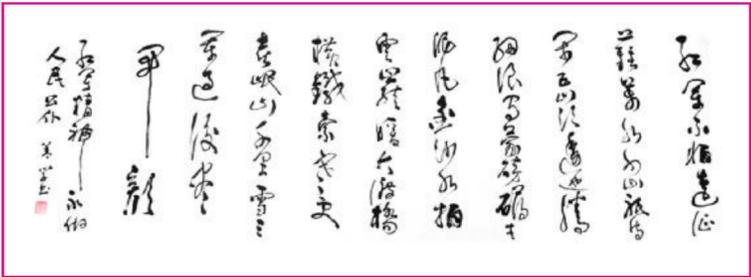 红军不怕远征
難萬水千山只等
闲五岭逶迤腾
细浪乌蒙磅礴走
泥丸金沙水拍
雲崖暖大渡橋
横鐵索寒更
喜岷山千里雪三
军过後尽
开颜
红军精神永做
人民公仆